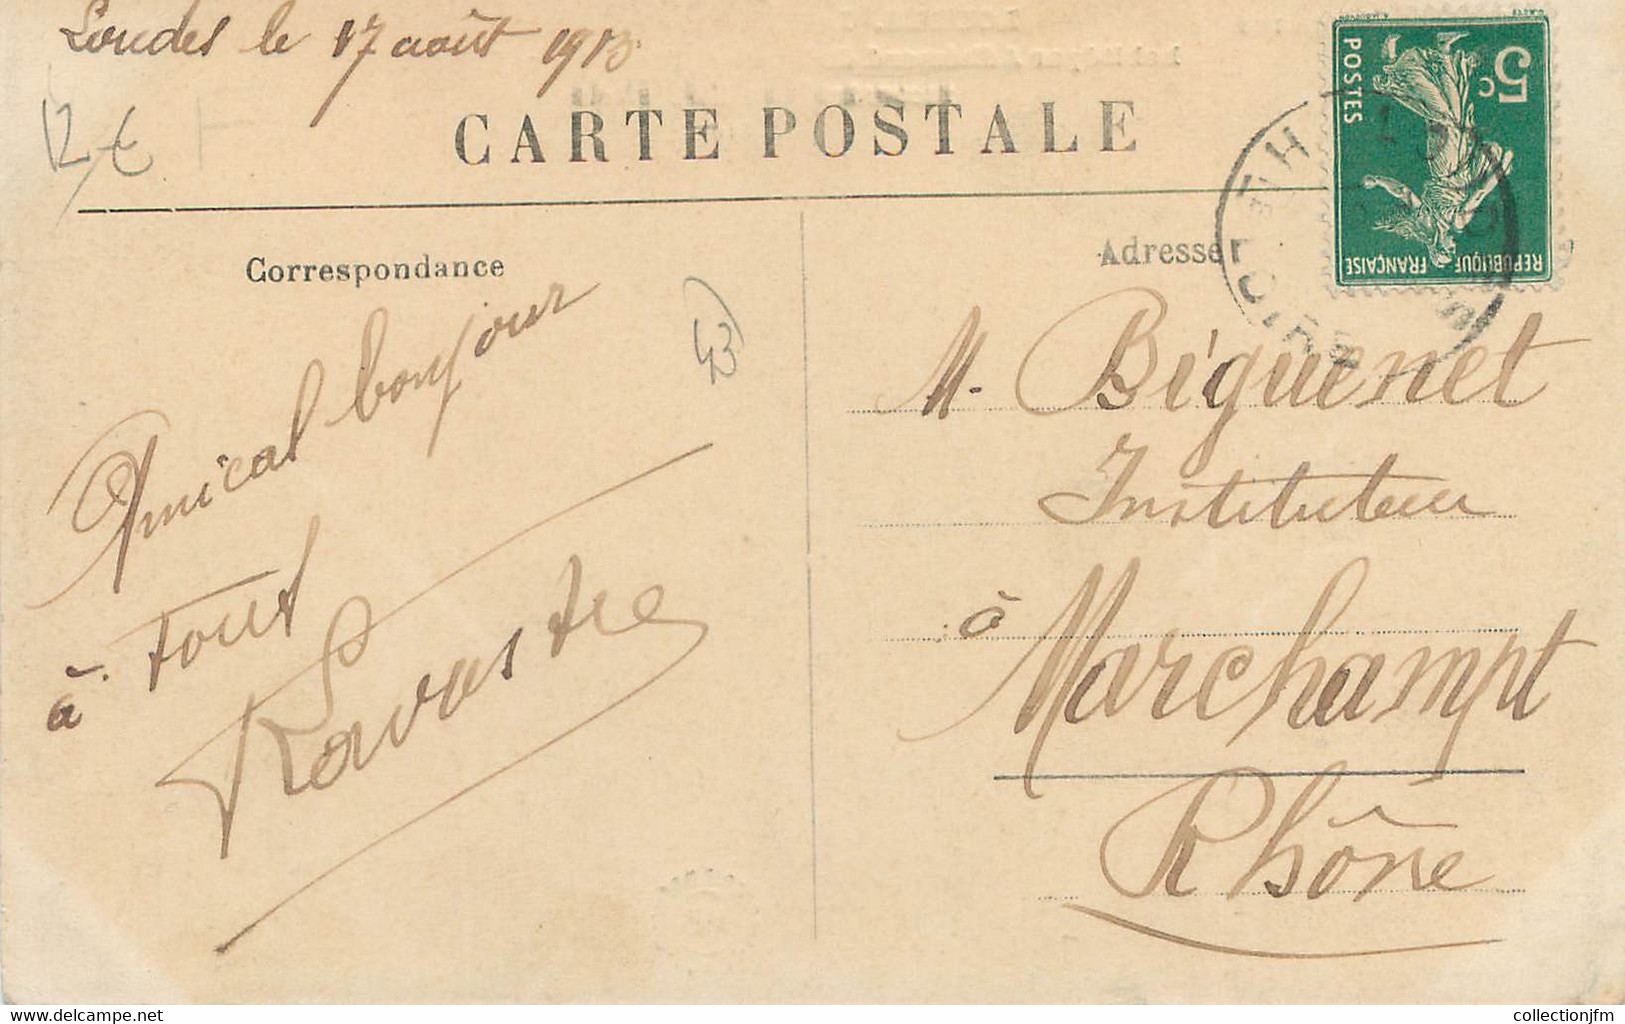 Loudes le 17 août 1913
12 €
CARTE POSTALE
Correspondance
Adresse
5c
POSTES
REPUBLIQUE FRANÇAISE
43
Amical bonjour
à tous
M. Biguenet
Instituteur
à
Marchampt
Rhône
www.delcampe.net
collectionjfm